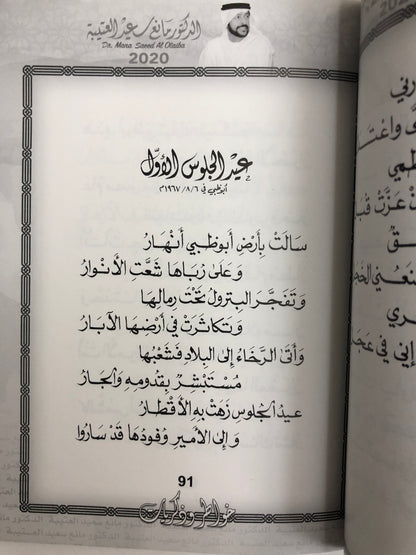 الدكتور مانع سعيد العتيبة
Dr. Mana Saeed Al Otaiba
2020
عيد الجلوس الأول
أبوظبي في ٦/٨/١٩٦٧م
سَالَتْ بِأَرْضِ أَبُوظَبي أَنْهَارُ
وَعَلَى رُبَاهَا شَعَّتِ الأَنْوَارُ
وَتَفَجَّرَ البِترولُ تَحْتَ رِمَالِهَا
وَتَكَاثَرَتْ في أَرْضِهَا الآبَارُ
وَأَتَى الرَّخَاءُ إِلى البِلادِ فَشَعْبُهَا
مُسْتَبْشِرٌ بِقُدومِهِ وَالجَارُ
عيدُ الجُلوسِ زَهَتْ بِهِ الأَقْطَارُ
وَإِلى الأَميرِ وُفودُهَا قَدْ سَارُوا
91
خواطر وذكريات
الدكتور مانع سعيد العتيبة